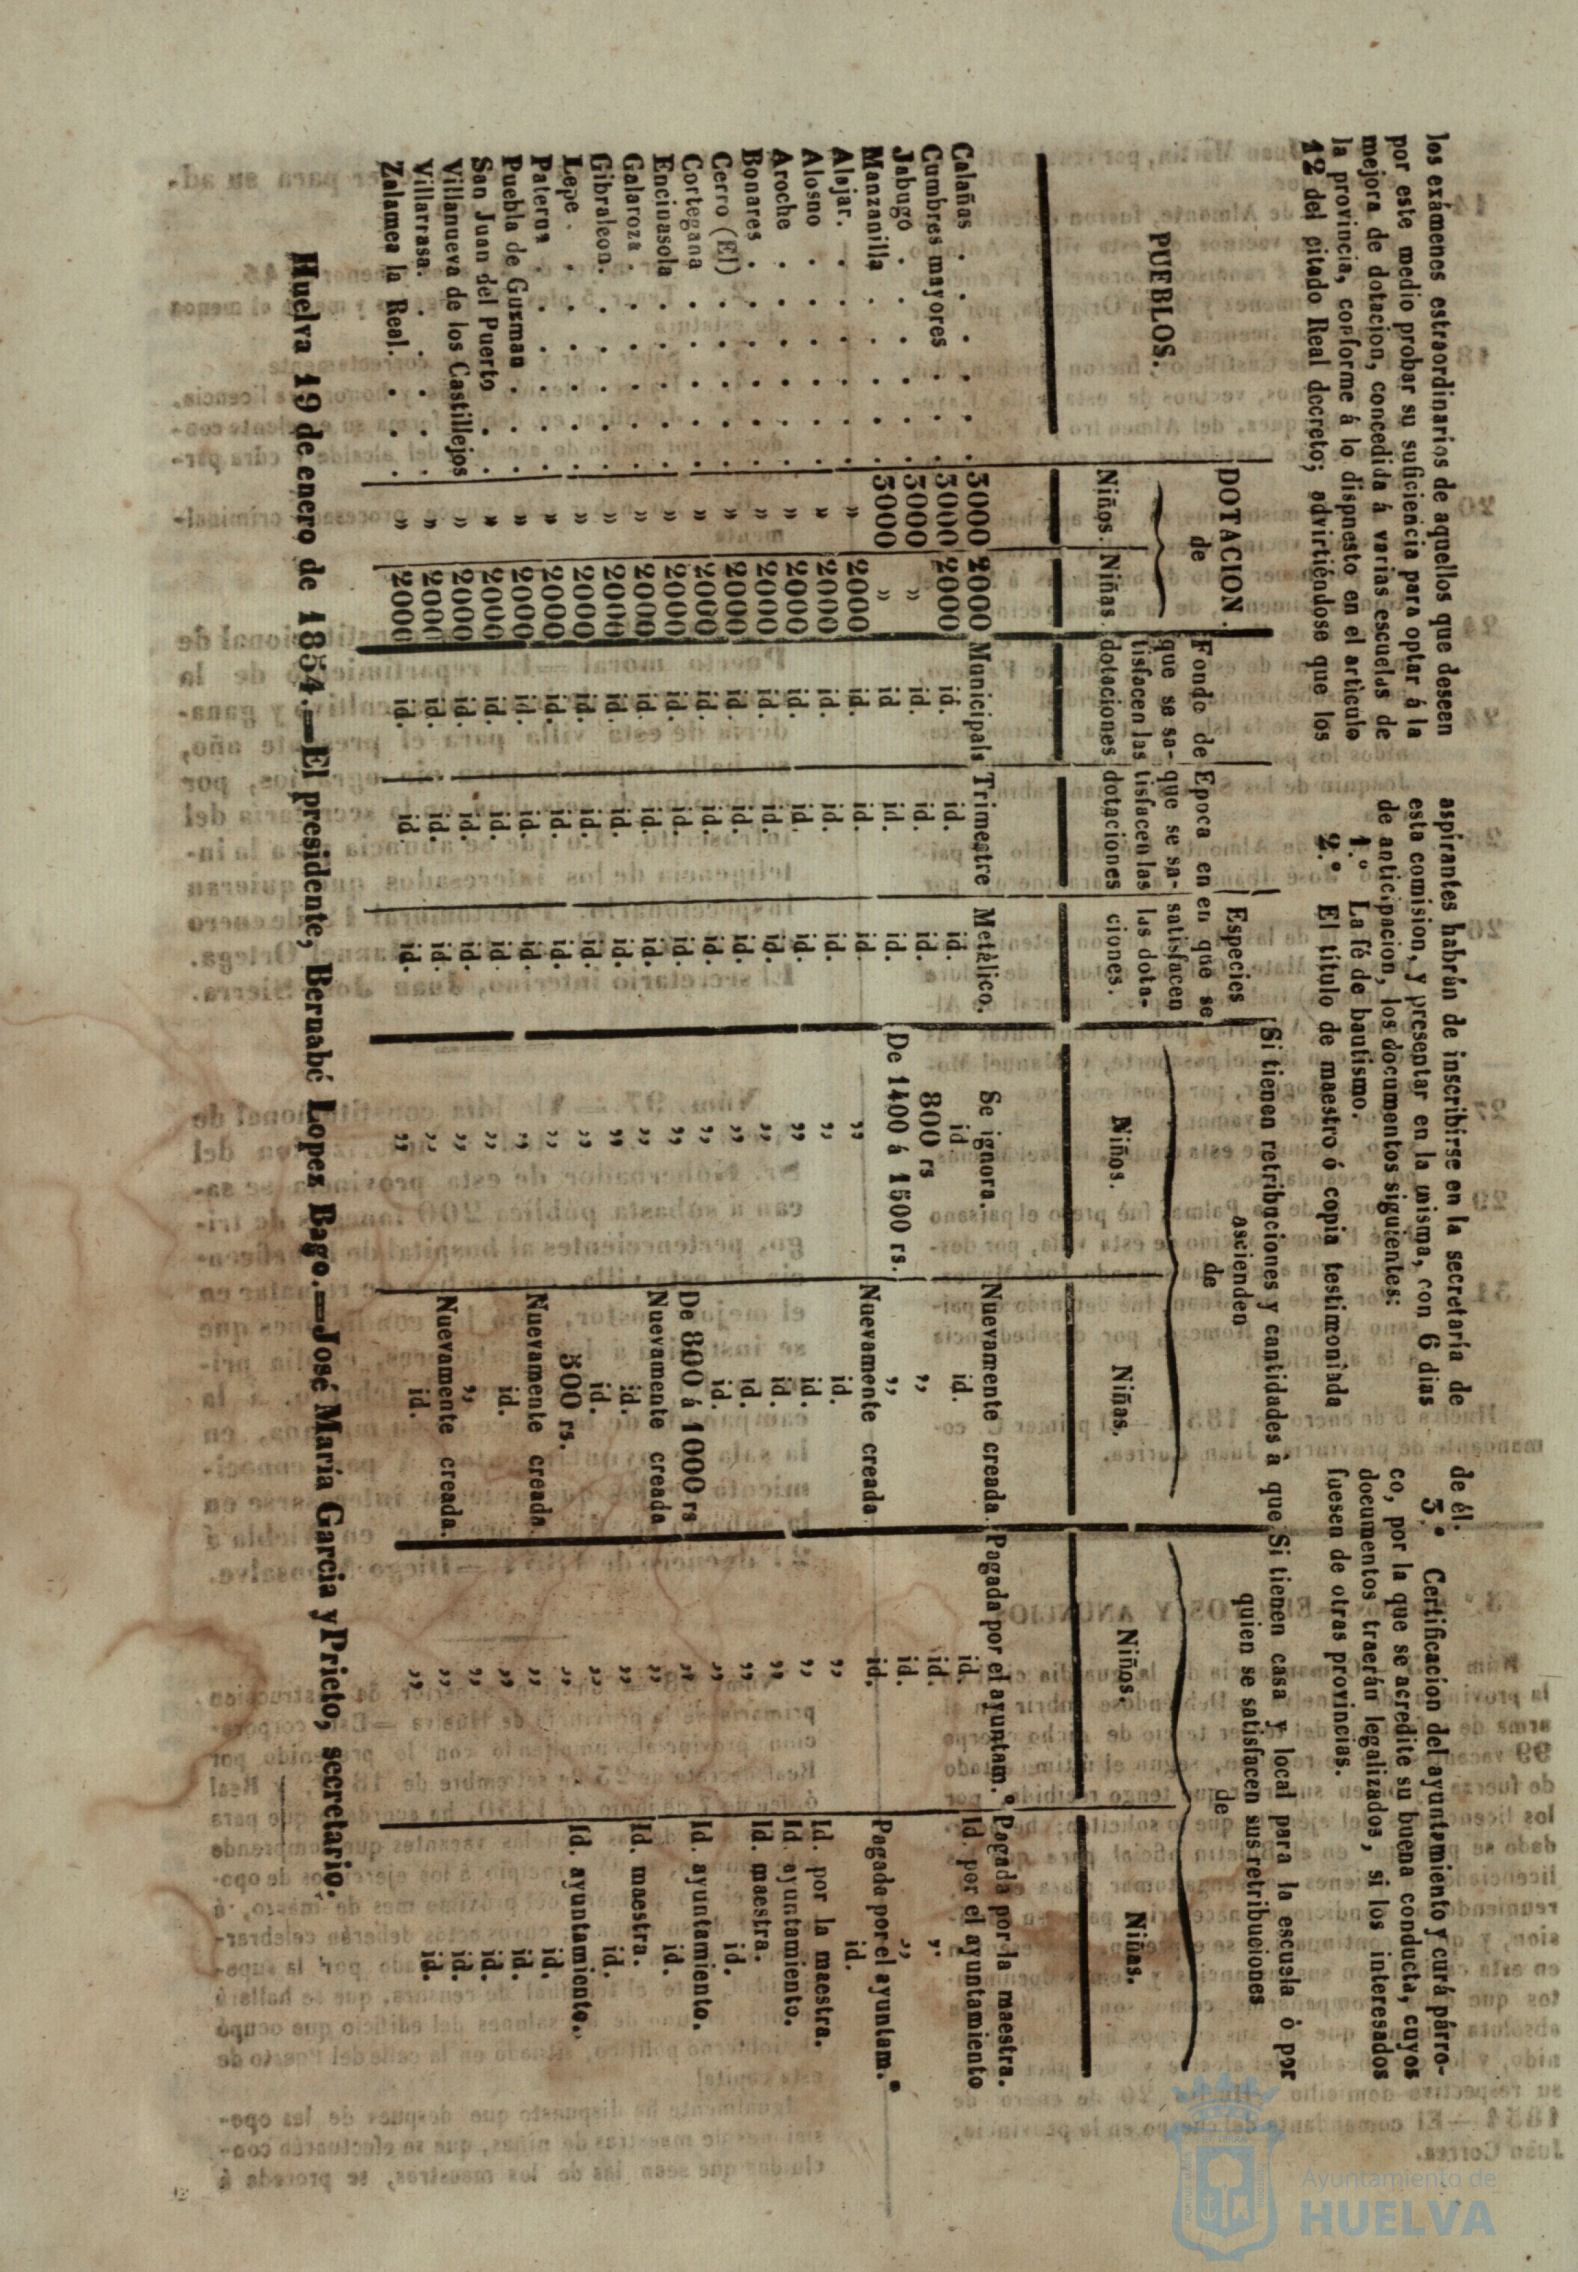 los exámenes estraordinarios de aquellos que deseen
por este medio probar su suficiencia para optar á la
mejora de dotacion, concedida á varias escuelas de
la provincia, conforme á lo dispuesto en el artículo
12 del citado Real decreto; advirtiéndose que los
aspirantes habrán de inscribirse en la secretaría de
esta comision, y presentar en la misma, con 6 dias
de anticipacion, los documentos siguientes:
1.º La fé de bautismo.
2.º El título de maestro ó copia testimoniada
de él.
3.º Certificacion del ayuntamiento y cura párro-
co, por la que se acredite su buena conducta, cuyos
documentos traerán legalizados, si los interesados
fuesen de otras provincias.
PUEBLOS.
DOTACION
de
Niños. Niñas.
Fondo de
que se sa-
tisfacen las
dotaciones
Epoca en
que se sa-
tisfacen las
dotaciones
Especies
en que se
satisfacen
las dota-
ciones.
Si tienen retribuciones y cantidades á que
ascienden
de
Niños. Niñas.
Si tienen casa y local para la escuela ó por
quien se satisfacen sus retribuciones
de
Niños. Niñas.
Calañas 3000 2000 Municipals Trimestre Metálico. Se ignora. Nuevamente creada. Pagada por el ayuntam.º Pagada por la maestra.
Cumbres mayores 3000 2000 id. id. id. id Id. id. Id. por el ayuntamiento
Jabugo 3000 » id. id. id. 800 rs ,, id. ,,
Manzanilla 3000 » id. id. id. De 1400 á 1500 rs. ,, id. ,,
Alajar. » 2000 id. id. id. ,, Nuevamente creada ,, Pagada por el ayuntam.º
Alosno » 2000 id. id. id. ,, id. ,, id.
Aroche » 2000 id. id. id. ,, id. ,, Id. por la maestra.
Bonares » 2000 id. id. id. ,, id. ,, Id. ayuntamiento.
Cerro (El) » 2000 id. id. id. ,, id. ,, Id. maestra.
Cortegana » 2000 id. id. id. ,, id. ,, id.
Encinasola » 2000 id. id. id. ,, De 800 á 1000 rs ,, Id. ayuntamiento.
Galaroza » 2000 id. id. id. ,, Nuevamente creada ,, id.
Gibraleon. » 2000 id. id. id. ,, id. ,, Id. maestra.
Lepe » 2000 id. id. id. ,, id. ,, id.
Paterna » 2000 id. id. id. ,, 500 rs. ,, Id. ayuntamiento.
Puebla de Guzman » 2000 id. id. id. ,, Nuevamente creada ,, id.
San Juan del Puerto » 2000 id. id. id. ,, id. ,, id.
Villanueva de los Castillejos » 2000 id. id. id. ,, ,, ,, id.
Villarrasa. » 2000 id. id. id. ,, Nuevamente creada. ,, id.
Zalamea la Real. » 2000 id. id. id. ,, id. ,, id.
Huelva 19 de enero de 1854.—El presidente, Bernabé Lopez Bago.—José María Garcia y Prieto, secretario.
Ayuntamiento de
HUELVA